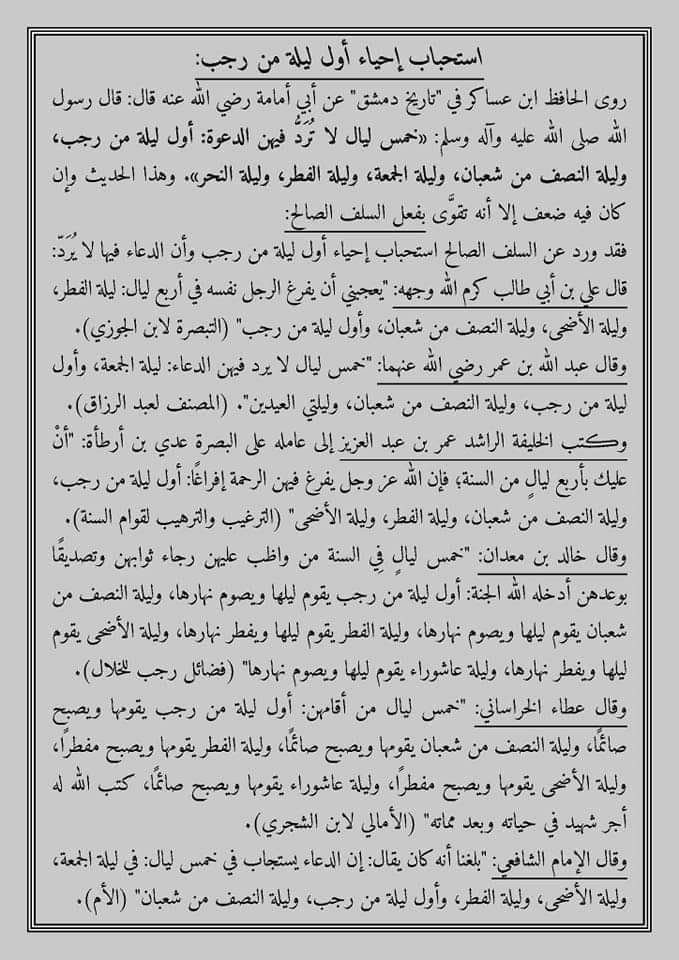 استحباب إحياء أول ليلة من رجب:
روى الحافظ ابن عساكر في "تاريخ دمشق" عن أبي أمامة رضي الله عنه قال: قال رسول
الله صلى الله عليه وآله وسلم: «خمس ليال لا تُرَدُّ فيهن الدعوة: أول ليلة من رجب،
وليلة النصف من شعبان، وليلة الجمعة، وليلة الفطر، وليلة النحر». وهذا الحديث وإن
كان فيه ضعف إلا أنه تقوَّى بفعل السلف الصالح:
فقد ورد عن السلف الصالح استحباب إحياء أول ليلة من رجب وأن الدعاء فيها لا يُرَدّ:
قال علي بن أبي طالب كرم الله وجهه: "يعجبني أن يفرغ الرجل نفسه في أربع ليال: ليلة الفطر،
وليلة الأضحى، وليلة النصف من شعبان، وأول ليلة من رجب" (التبصرة لابن الجوزي).
وقال عبد الله بن عمر رضي الله عنهما: "خمس ليال لا يرد فيهن الدعاء: ليلة الجمعة، وأول
ليلة من رجب، وليلة النصف من شعبان، وليلتي العيدين". (المصنف لعبد الرزاق).
وكتب الخليفة الراشد عمر بن عبد العزيز إلى عامله على البصرة عدي بن أرطأة: "أنْ
عليك بأربع ليالٍ من السنة؛ فإن الله عز وجل يفرغ فيهن الرحمة إفراغًا: أول ليلة من رجب،
وليلة النصف من شعبان، وليلة الفطر، وليلة الأضحى" (الترغيب والترهيب لقوام السنة).
وقال خالد بن معدان: "خمس ليالٍ فِي السنة من واظب عليهن رجاء ثوابهن وتصديقًا
بوعدهن أدخله الله الجنة: أول ليلة من رجب يقوم ليلها ويصوم نهارها، وليلة النصف من
شعبان يقوم ليلها ويصوم نهارها، وليلة الفطر يقوم ليلها ويفطر نهارها، وليلة الأضحى يقوم
ليلها ويفطر نهارها، وليلة عاشوراء يقوم ليلها ويصوم نهارها" (فضائل رجب للخلال).
وقال عطاء الخراساني: "خمس ليال من أقامهن: أول ليلة من رجب يقومها ويصبح
صائمًا، وليلة النصف من شعبان يقومها ويصبح صائمًا، وليلة الفطر يقومها ويصبح مفطرًا،
وليلة الأضحى يقومها ويصبح مفطرًا، وليلة عاشوراء يقومها ويصبح صائمًا، كتب الله له
أجر شهيد في حياته وبعد مماته" (الأمالي لابن الشجري).
وقال الإمام الشافعي: "بلغنا أنه كان يقال: إن الدعاء يستجاب في خمس ليال: في ليلة الجمعة،
وليلة الأضحى، وليلة الفطر، وأول ليلة من رجب، وليلة النصف من شعبان" (الأم).